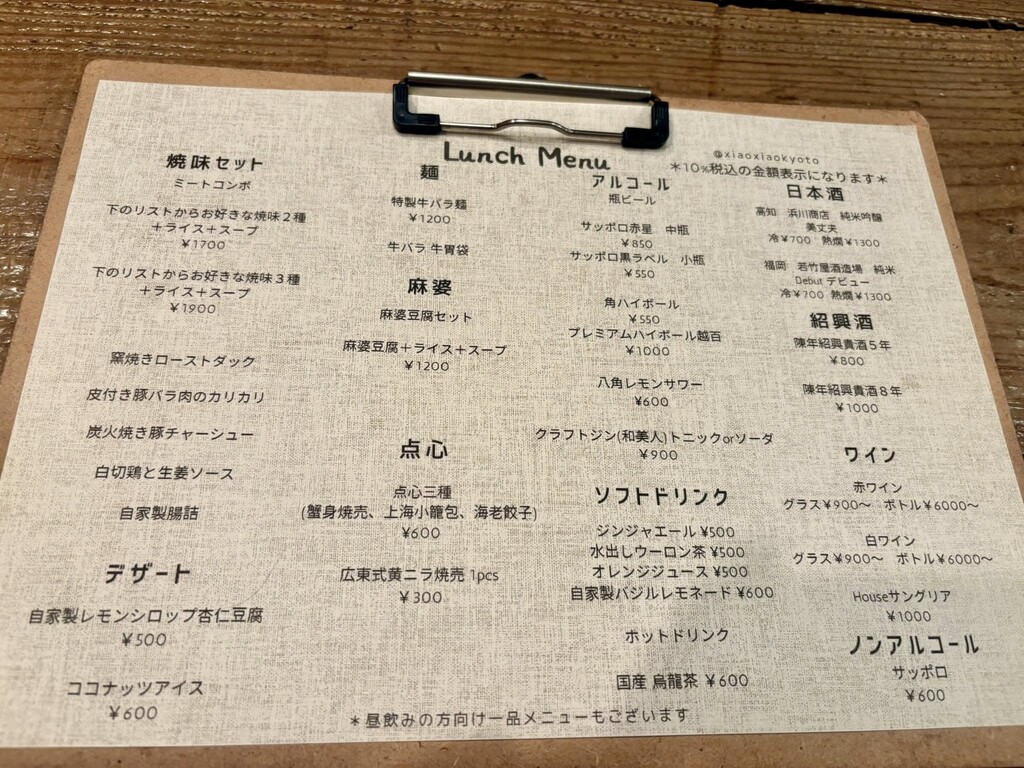 Lunch Menu
@xiaoxiaokyoto
＊10%税込の金額表示になります＊
焼味セット
ミートコンボ
下のリストからお好きな焼味２種
＋ライス＋スープ
￥1700
下のリストからお好きな焼味３種
＋ライス＋スープ
￥1900
窯焼きローストダック
皮付き豚バラ肉のカリカリ
炭火焼き豚チャーシュー
白切鶏と生姜ソース
自家製腸詰
デザート
自家製レモンシロップ杏仁豆腐
￥500
ココナッツアイス
￥600
麺
特製牛バラ麺
￥1200
牛バラ 牛胃袋
麻婆
麻婆豆腐セット
麻婆豆腐＋ライス＋スープ
￥1200
点心
点心三種
(蟹身焼売、上海小籠包、海老餃子)
￥600
広東式黄ニラ焼売 1pcs
￥300
アルコール
瓶ビール
サッポロ赤星　中瓶
￥850
サッポロ黒ラベル　小瓶
￥550
角ハイボール
￥550
プレミアムハイボール越百
￥1000
八角レモンサワー
¥600
クラフトジン(和美人)トニックorソーダ
￥900
ソフトドリンク
ジンジャエール ¥500
水出しウーロン茶 ¥500
オレンジジュース ¥500
自家製バジルレモネード ¥600
ホットドリンク
国産 烏龍茶 ￥600
日本酒
高知　浜川商店　純米吟醸
美丈夫
冷￥700　熱燗￥1300
福岡　若竹屋酒造場　純米
Debut デビュー
冷￥700　熱燗￥1300
紹興酒
陳年紹興貴酒５年
￥800
陳年紹興貴酒８年
￥1000
ワイン
赤ワイン
グラス￥900〜　ボトル￥6000〜
白ワイン
グラス￥900〜　ボトル￥6000〜
Houseサングリア
￥1000
ノンアルコール
サッポロ
￥600
＊昼飲みの方向け一品メニューもございます